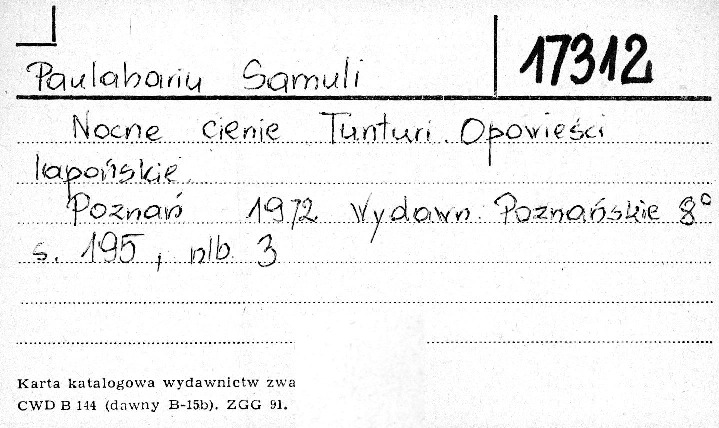 Paulaharju Samuli 17312
Nocne cienie Tunturi. Opowieści
lapońskie.
Poznań 1972 Wydawn. Poznańskie 8°
s. 195, nlb. 3
Karta katalogowa wydawnictw zwa
CWD B 144 (dawny B-15b). ZGG 91.